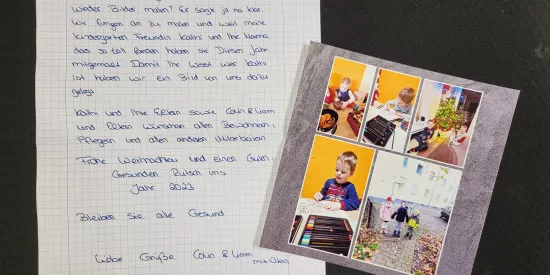 wieder Bilder malen? Er sagte ja na klar.
Wir fingen an zu malen und weil meine
Kindergarten Freundin Kathi und Ihre Mama
das so toll fanden haben sie Diesen Jahr
mitgemacht. Damit Ihr wisst wer Kathi
ist haben wir ein Bild von uns dazu
gelegt
Kathi und Ihre Eltern sowie Colin & Liam
und Eltern wünschen allen Bewohnern,
Pflegern und allen anderen Mitarbeitern
Frohe Weihnachten und einen Guten,
Gesunden Rutsch ins
Jahr 2023
Bleiben sie alle Gesund
Liebe Grüße Colin & Liam
mit Eltern